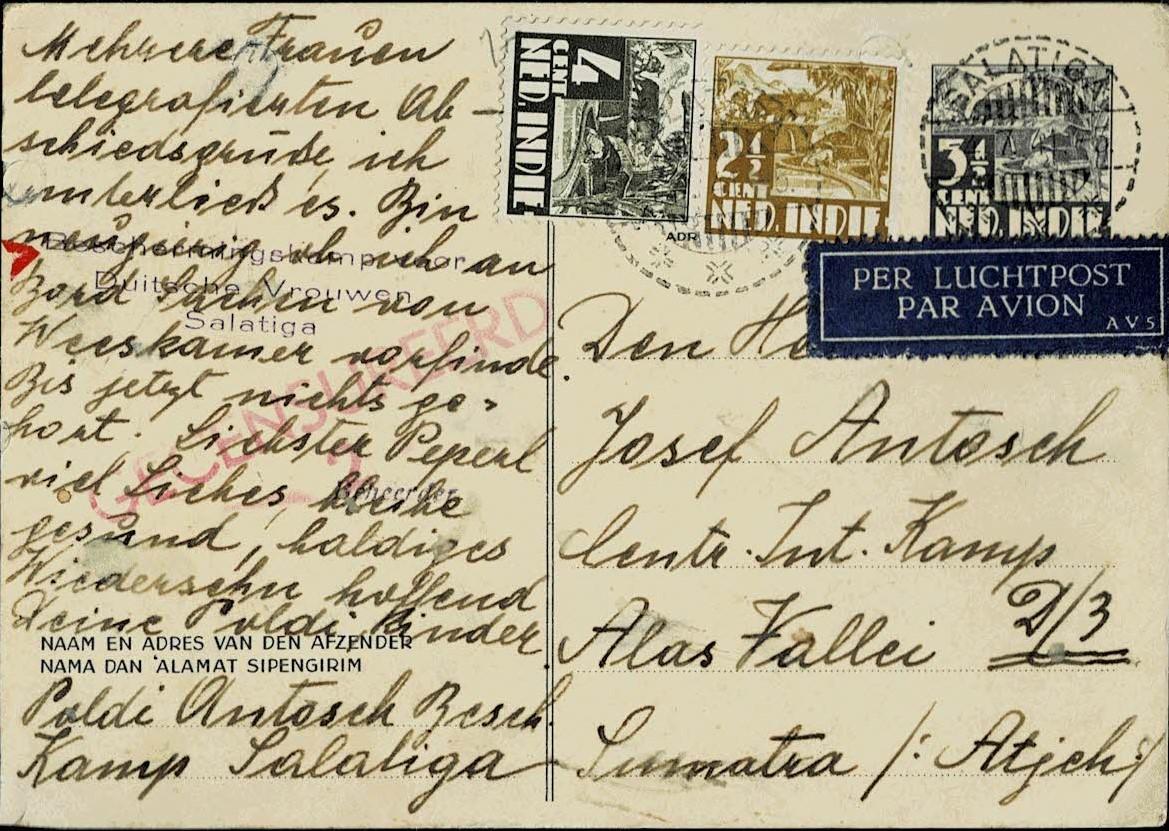 Mehrere Frauen
telegrafierten Ab-
schiedsgrüße, ich
unterließ es. Bin
neugierig ob ich an
Bord Sachen von
Weeskamer vorfinde.
Bis jetzt nichts ge-
hört. Liebster Peperl
viel Liebes, bleibe
gesund, baldiges
Wiedersehn hoffend
Deine Poldi Kinder
Beschermingskamp voor
Duitsche Vrouwen
Salatiga
GECENSUREERD
2
Beheerder
NAAM EN ADRES VAN DEN AFZENDER
NAMA DAN 'ALAMAT SIPENGIRIM
Poldi Antosch Besch.
Kamp Salatiga
4
CENT
NED. INDIE
2½
CENT
NED. INDIE
3½
CENT
NED. INDIE
SALATIGA
ADR
PER LUCHTPOST
PAR AVION
AV5
Den He
Josef Antosch
Centr. Int. Kamp
Alas Vallei D/3
Sumatra /: Atjeh :/